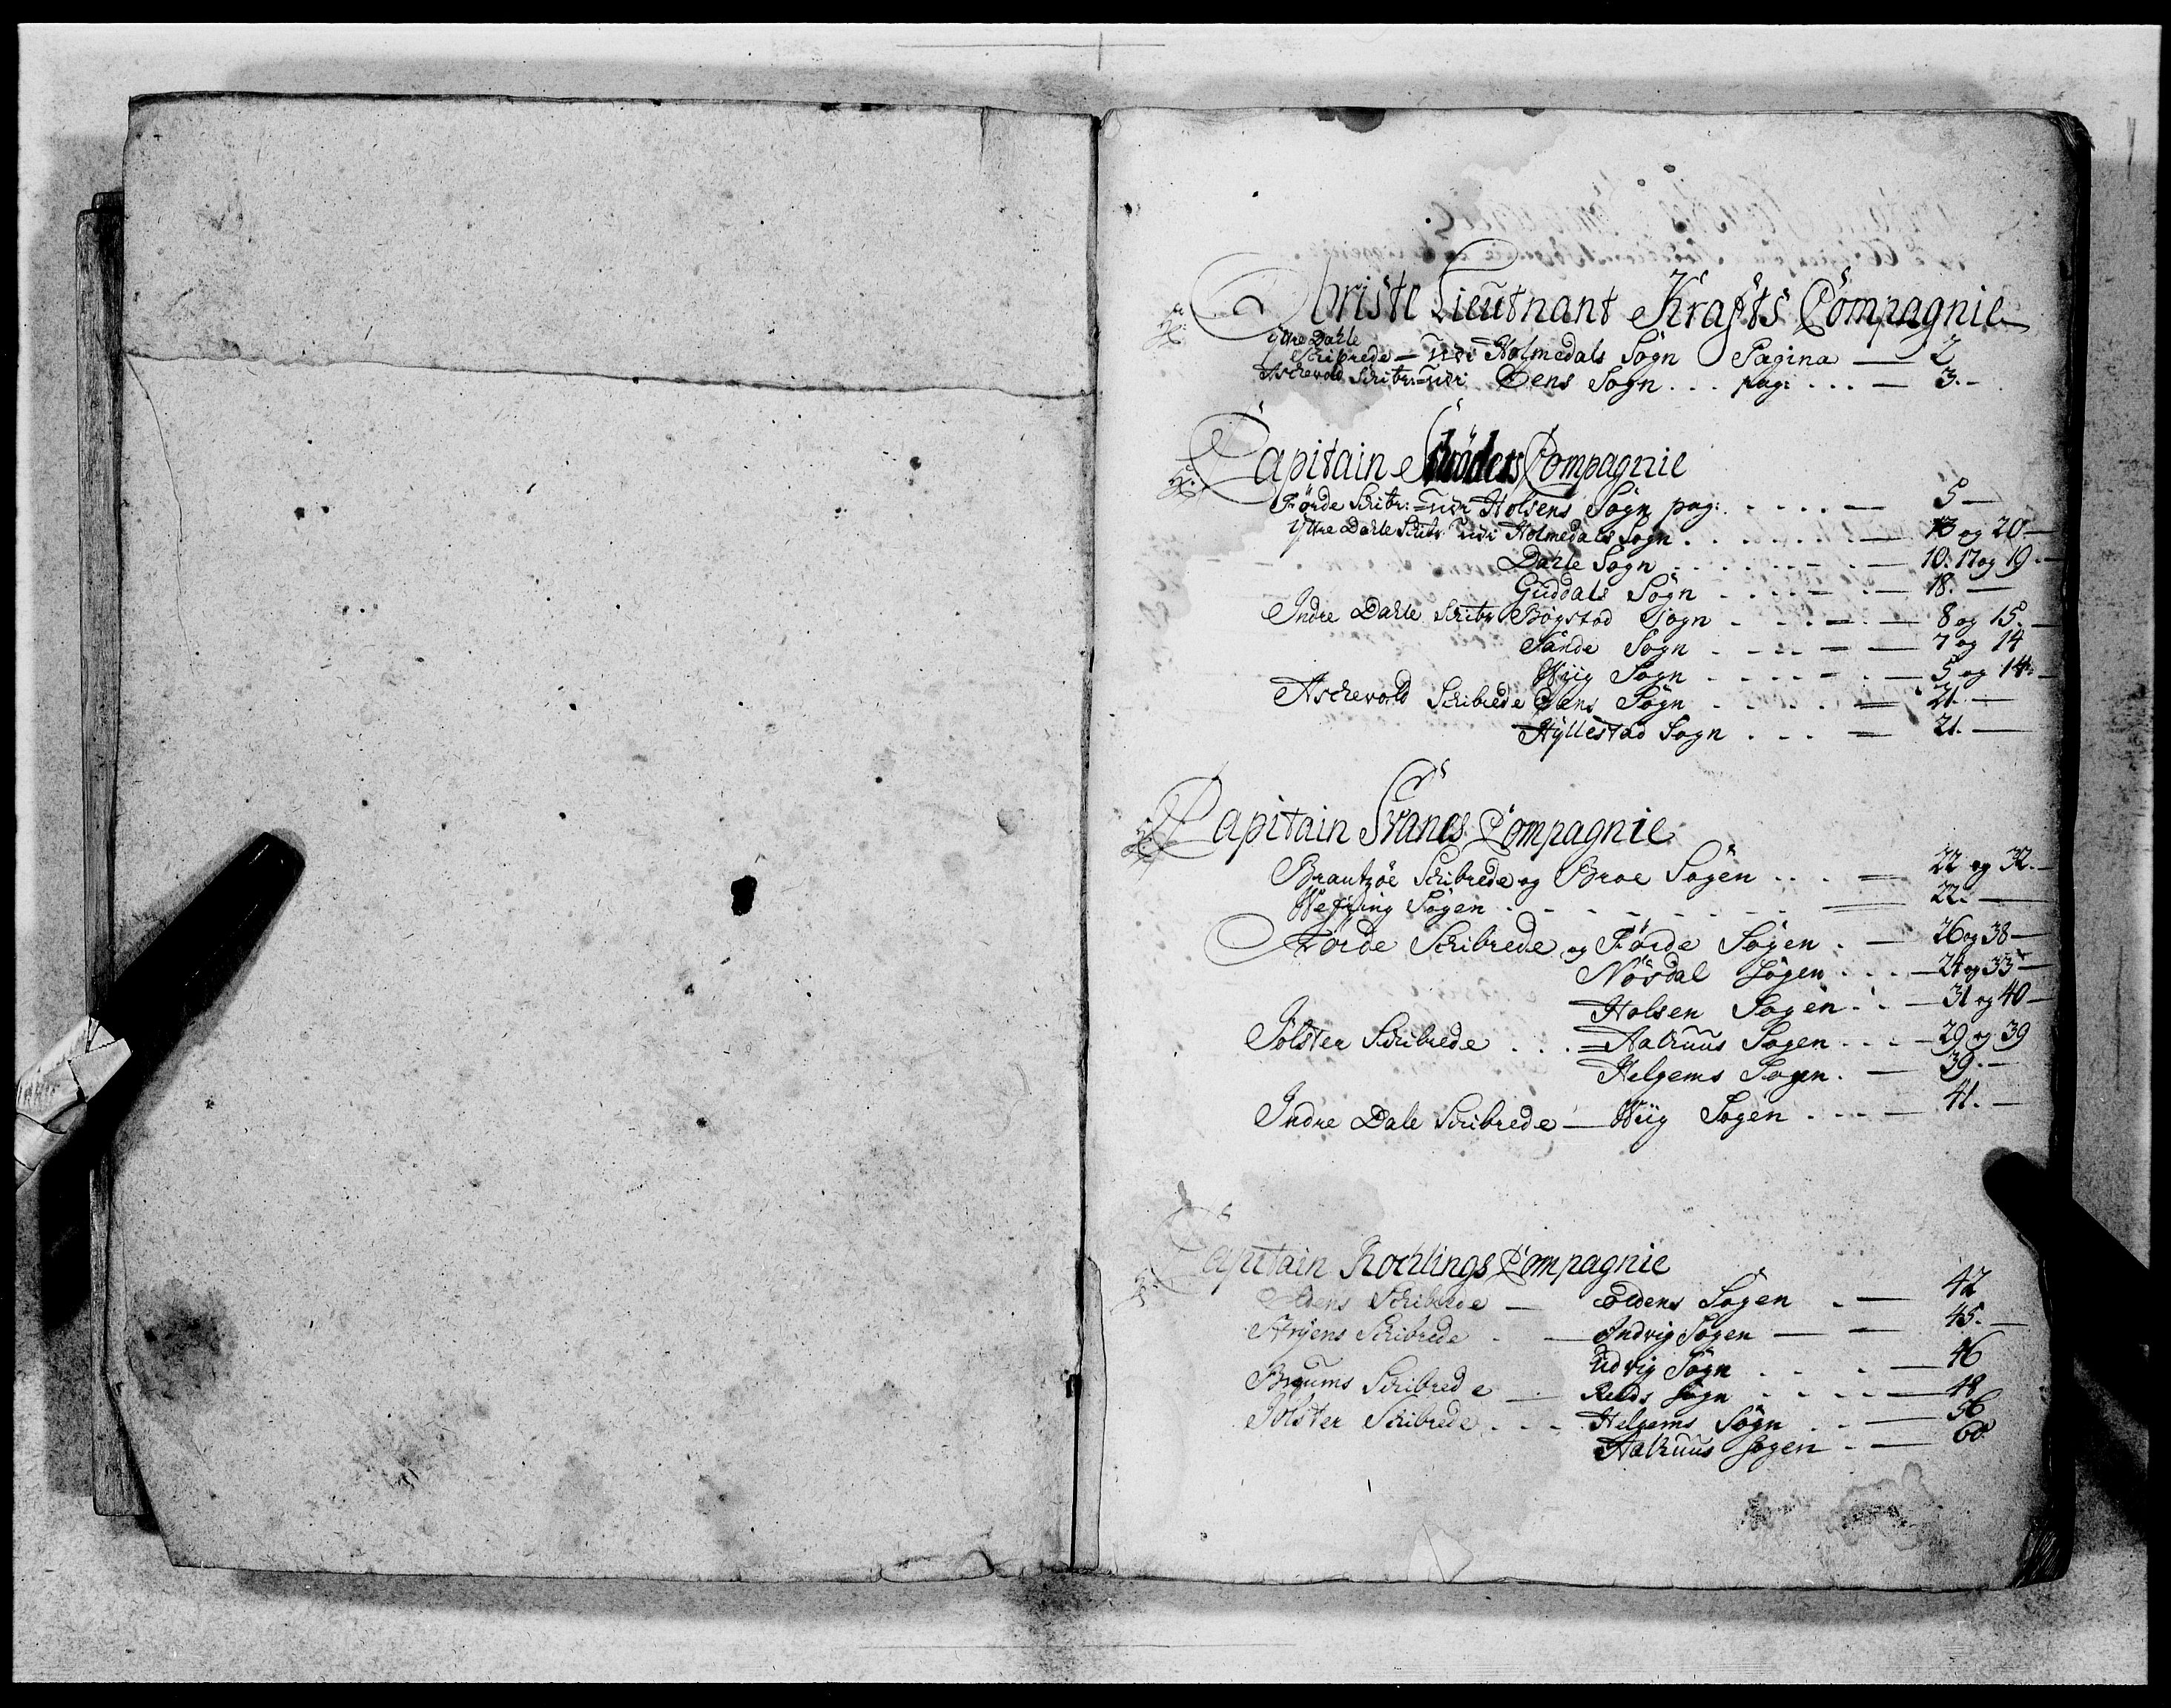 Obriste Lieutnant Krafts Compagnie
Yttre Dahle
Schibrede — udi Holmedals Sogn Pagina — 2
Aschevold Schibr: udi Eens Sogn . . . pag: . . . — 3. —
Capitain Schröders Compagnie
Förde Schibr: udi Holsens Sogn pag: . . . . — 5 —
Yttre Dahle Schibr udi Holmedals Sogn . . . . — 13 og 20 —
Dahle Sogn . . . . — 10. 17 og 19. —
Guddals Sogn . . . . — 18. —
Indre Dahle Schibr Bögstad Sogn . . . — 8 og 15. —
Sande Sogn . . . . — 7 og 14
Wiig Sogn . . . . — 5 og 14. —
Aschevold Schibrede Eens Sogn . . . . — 21. —
Hyllestad Sogn . . . — 21. —
Capitain Svanes Compagnie
Brantzöe Schibrede og Broe Sogen . . . — 22 og 32. —
Wefring Sogen . . . . — 22. —
Förde Schibrede og Förde Sogen . — 26 og 38 —
Nösdal Sogen . . . — 24 og 33 —
Holsen Sogen . . — 31 og 40 —
Jölster Schibrede . . . — Aalhuus Sogen . . . — 29 og 39
Helgems Sogen . — 39. —
Indre Dale Schibrede — Wiig Sogen . . . — 41. —
Capitain Rochlings Compagnie
Oldens Schibrede — Oldens Sogen . — 42
Stryens Schibrede . — Indvig Sogen — — 45. —
Udvig Sogn . . . — 46
Breums Schibrede — Reeds Sogn . . . . — 48
Jölster Schibrede . . . Helgems Sogn . . — 56
Aalhuus Sogen . — 60